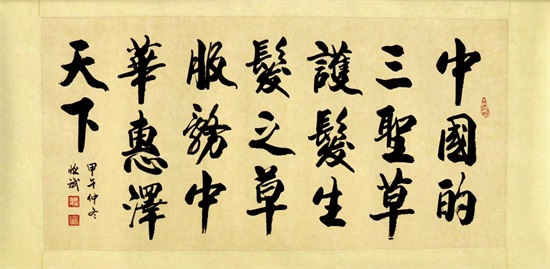 中國的
三聖草
護髮生
髮之草
服務中
華惠澤
天下
甲午仲冬